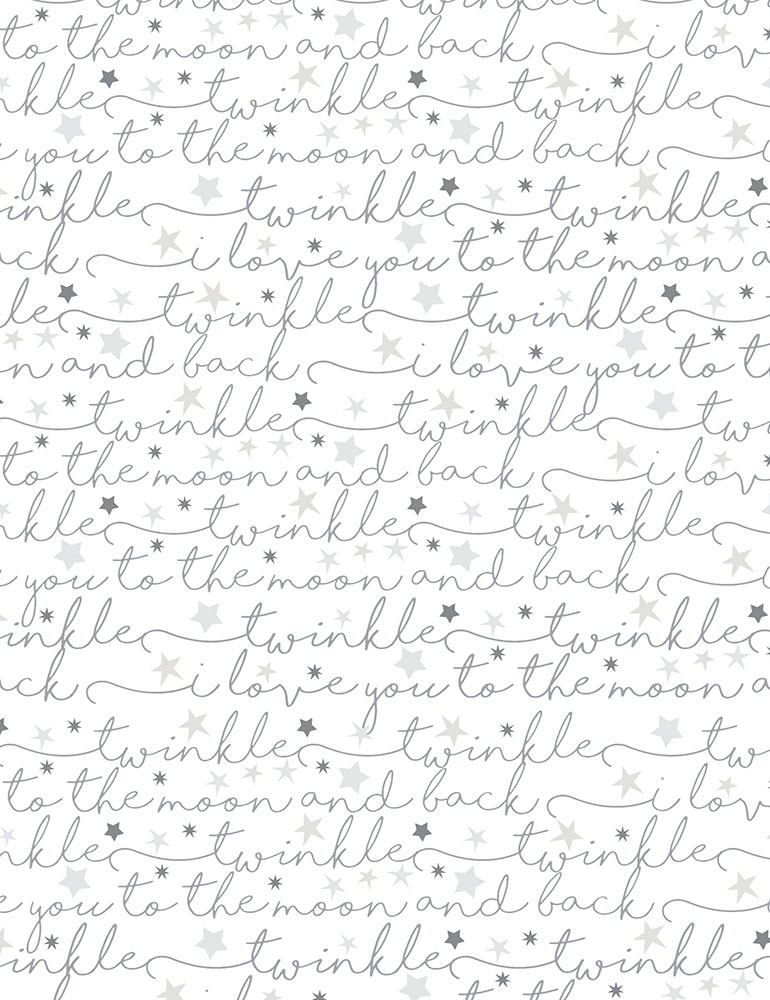 to the moon and back i lov
nkle twinkle twinkle
you to the moon and back
inkle twinkle twinkle
ck i love you to the moon a
le twinkle twinkle
n and back i love you to t
twinkle twinkle tw
to the moon and back i lov
nkle twinkle twinkle
you to the moon and back
inkle twinkle twinkle
ck i love you to the moon a
twinkle twinkle tw
to the moon and back i lov
nkle twinkle twinkle
you to the moon and back
inkle twinkle twinkle